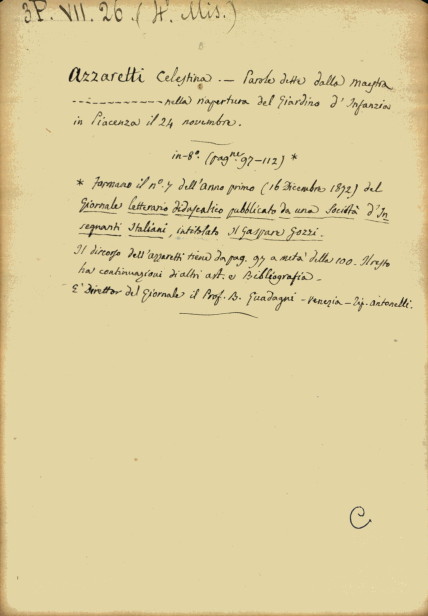 3P. VII. 26. (4°. Mis.)
Azzaretti Celestina. — Parole dette dalla maestra
— — — — — — nella riapertura del Giardino d'Infanzia
in Piacenza il 24 novembre.
in-8°. (pagne. 97-112) *
* Formano il n°. 7 dell'Anno primo (16 Dicembre 1872) del
Giornale letterario didascalico pubblicato da una Società d'In
segnanti Italiani, intitolato Il Gaspare Gozzi.
Il discorso dell'Azzaretti tiene da pag. 97 a metà della 100. Il resto
ha continuazioni di altri art. e Bibliografia.
E' Direttor del Giornale il Prof. B. Guadagni - Venezia - Tip. Antonelli.
C